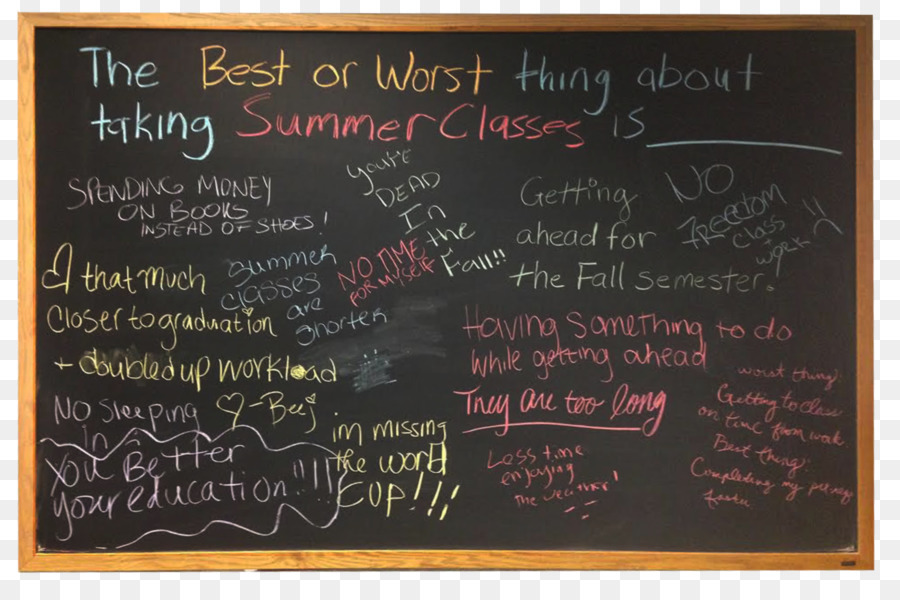 The Best or Worst thing about
taking Summer Classes is
SPENDING MONEY
ON BOOKS
INSTEAD OF SHOES!
You're
DEAD
In
the
Fall!!
Getting
ahead for
the Fall semester!
NO
FREEDOM
class
work
!!
that much
Closer to graduation
+ doubled up workload
♡-Beej
Summer
classes
are
shorter
NO TIME
FOR MYSELF
Having something to do
while getting ahead
They are too long
NO Sleeping
in
You Better
your education!!!!
im missing
the world
CUP!!!
Less time
enjoying
THE weather!
worst thing:
Getting to class
on time from work
Best thing:
Completing my
faster